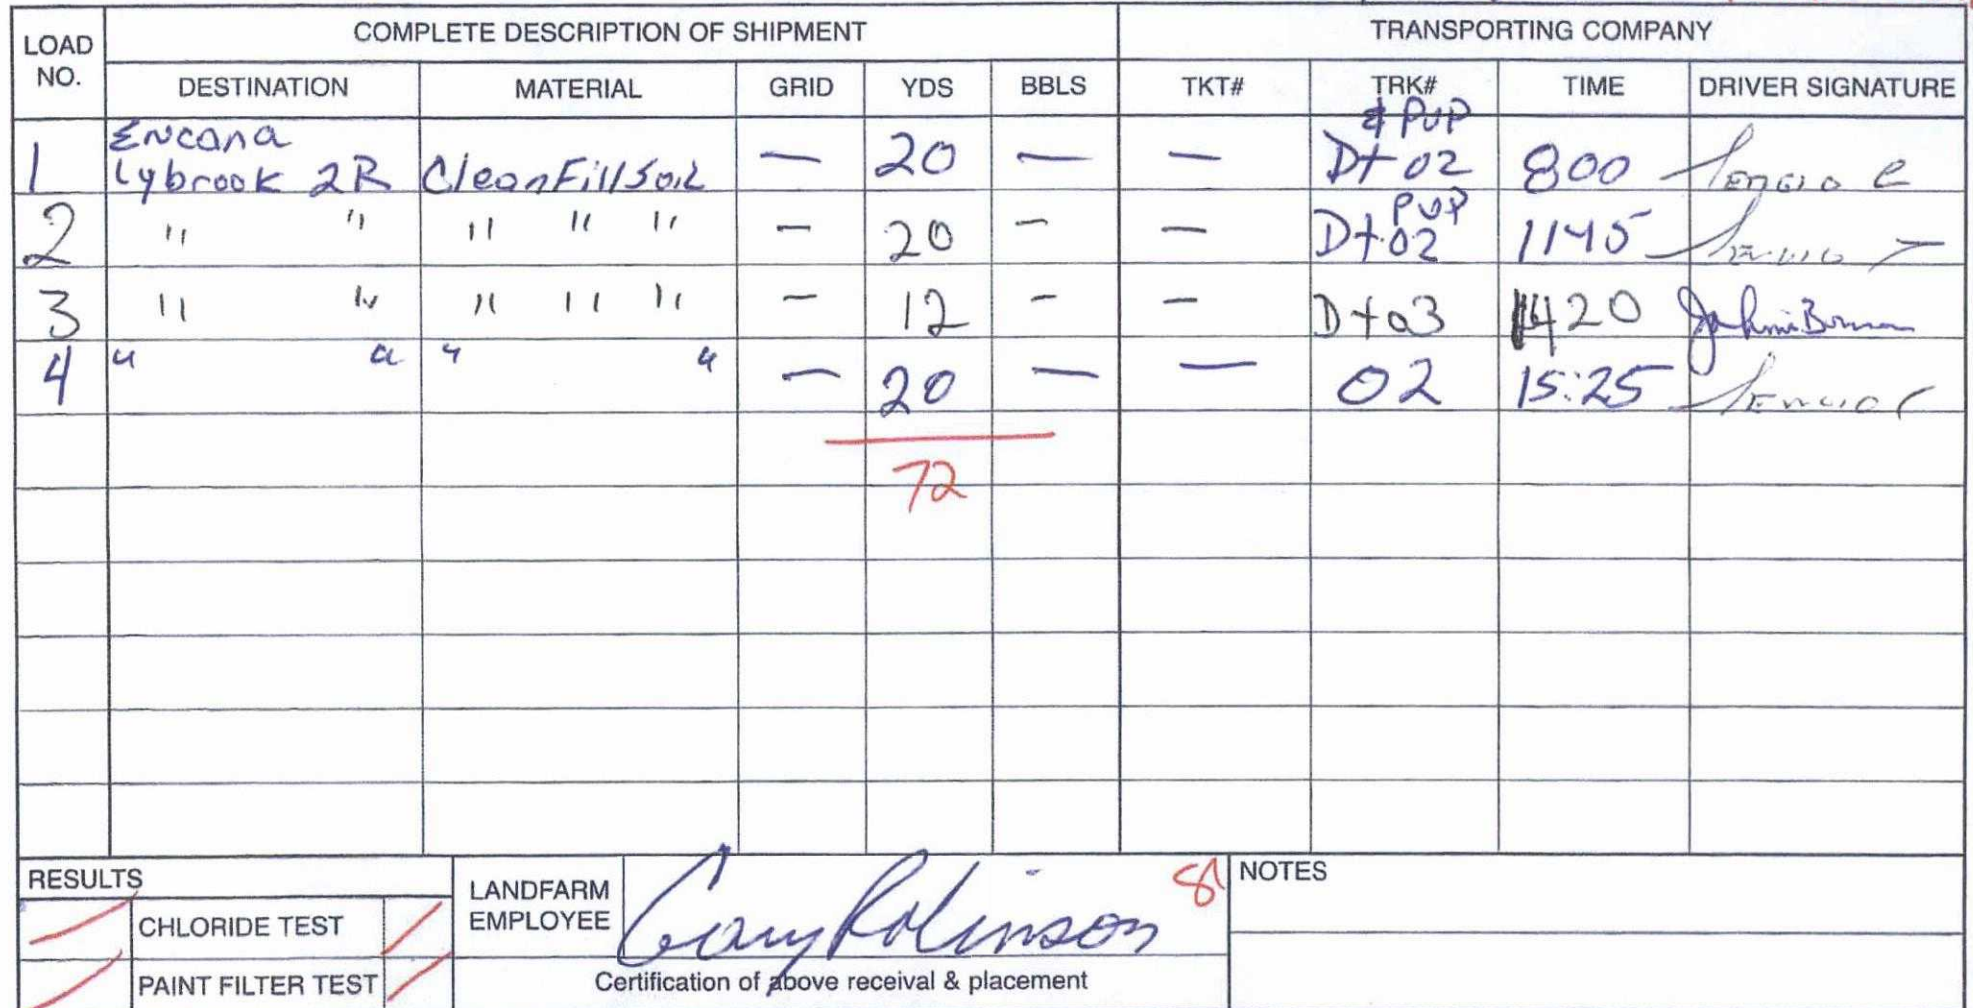 COMPLETE DESCRIPTION OF SHIPMENT TRANSPORTING COMPANY
LOAD NO. DESTINATION MATERIAL GRID YDS BBLS TKT# TRK# TIME DRIVER SIGNATURE
& PUP
1 Encana Lybrook 2R Clean Fill Soil — 20 — — D+02 800 Sergio C
PUP
2 " " " " " - 20 - - D+02 1145 Sergio
3 " " " " " - 12 - - D+03 1420
4 " " " " — 20 — — 02 15:25 Sergio C
72
RESULTS
CHLORIDE TEST
PAINT FILTER TEST
LANDFARM EMPLOYEE Gary Robinson
Certification of above receival & placement
NOTES